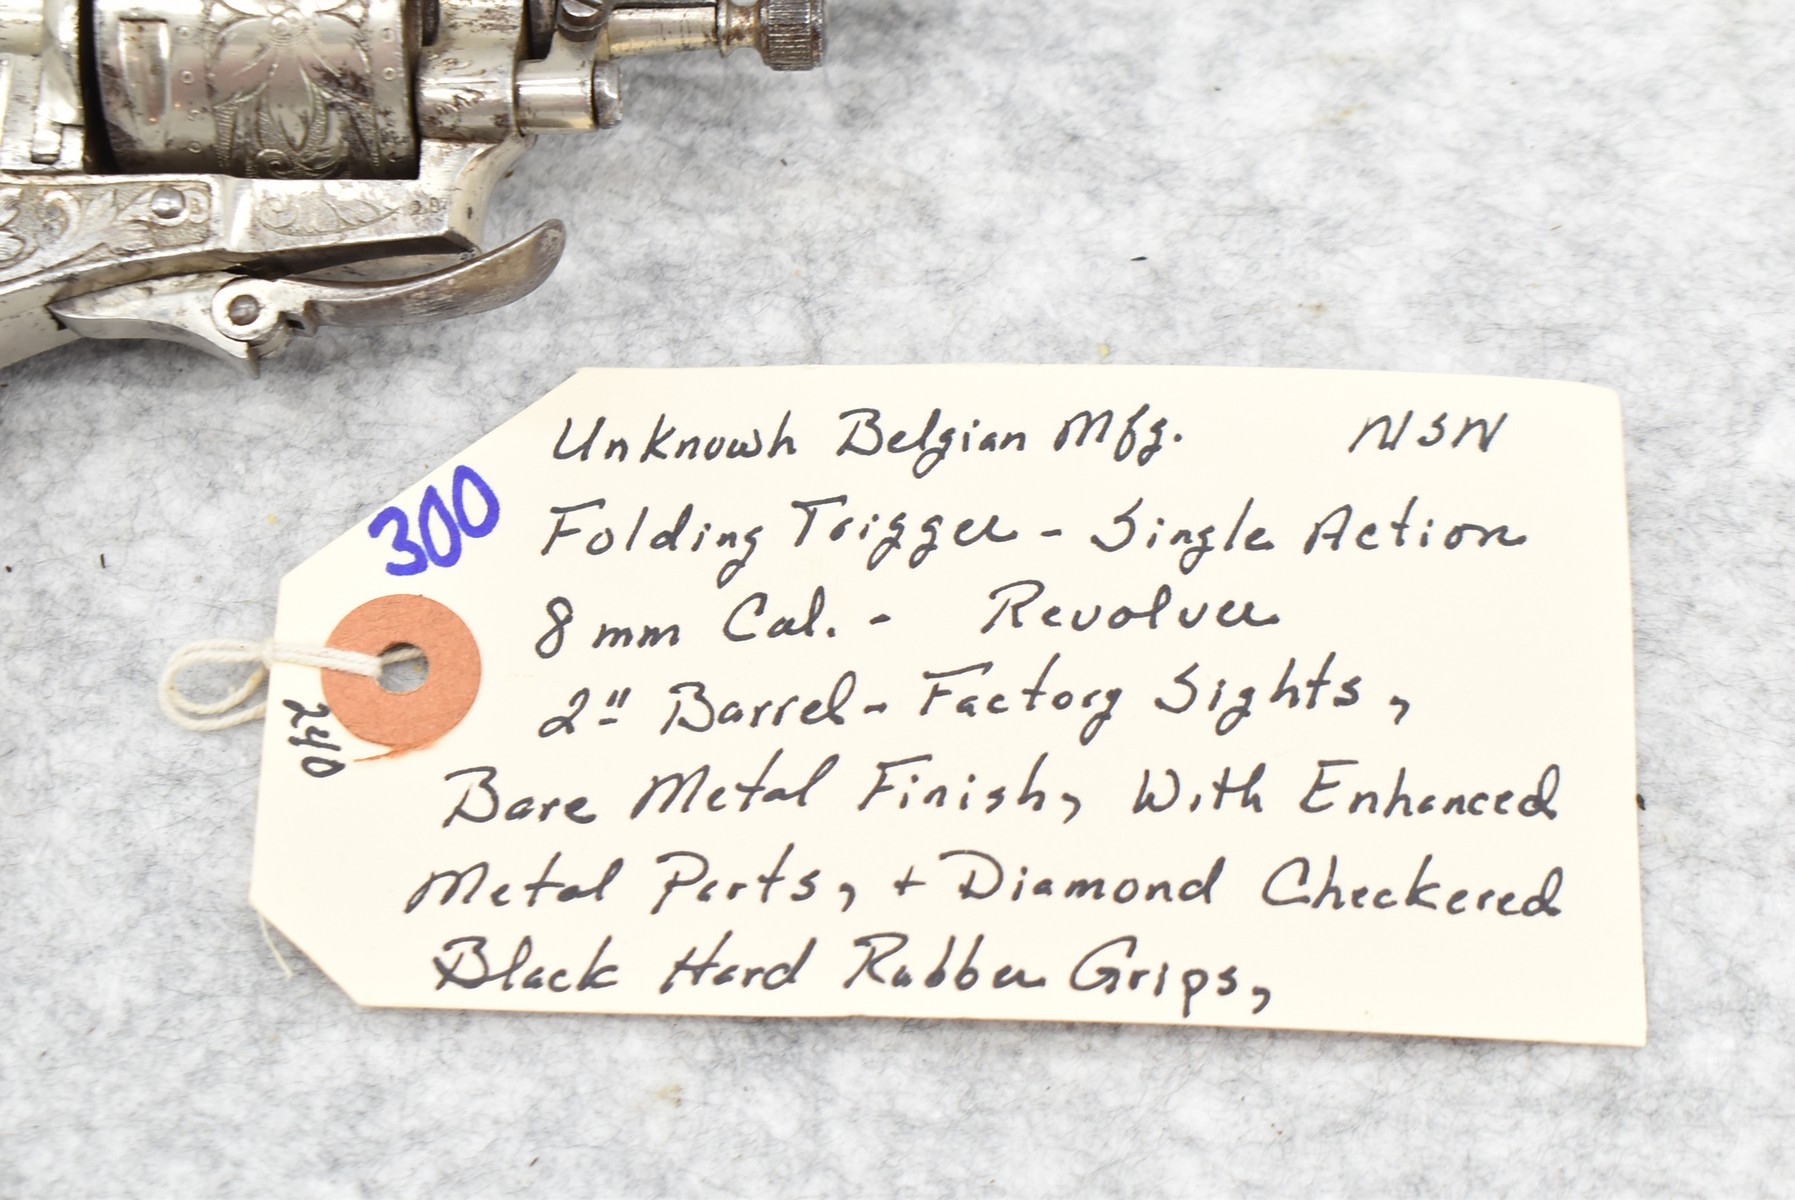 Unknown Belgian Mfg. NSN
Folding Trigger - Single Action
8mm Cal. - Revolver
2" Barrel - Factory Sights,
Bare Metal Finish, With Enhanced
Metal Parts, + Diamond Checkered
Black Hard Rubber Grips,
300
240
29